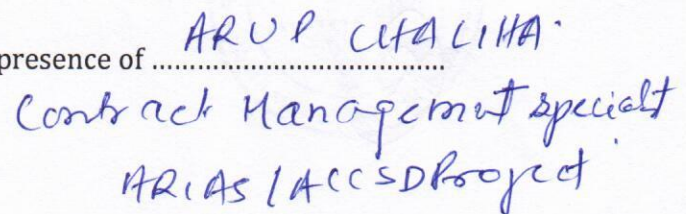 presence of ........................................ ARUP CHALIHA.
Contract Management specialist
ARIAS / ACCSDProject